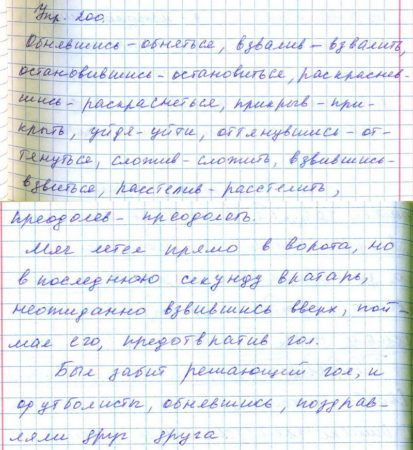 Упр. 200.
Обнявшись – обняться, взвалив – взвалить,
остановившись – остановиться, раскраснев-
шись – раскраснеться, прикрыв – при-
крыть, уйдя – уйти, оттянувшись – от-
тянуться, сложив – сложить, взвившись –
взвиться, расстелив – расстелить,
преодолев – преодолеть.
Мяч летел прямо в ворота, но
в последнюю секунду вратарь,
неожиданно взвившись вверх, пой-
мал его, предотвратив гол.
Был забит решающий гол, и
футболисты, обнявшись, поздрав-
ляли друг друга.